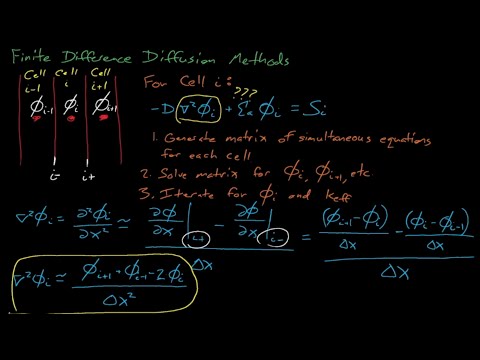 Finite Difference Diffusion Methods
Cell Cell Cell
i-1 i i+1
ϕi-1 ϕi ϕi+1
i- i+
For Cell i:
???
-D ∇²ϕi + Σa ϕi = Si
1. Generate matrix of simultaneous equations
for each cell
2. Solve matrix for ϕi, ϕi+1, etc.
3. Iterate for ϕi and keff
∇²ϕi = ∂²ϕi/∂x² ≃ (∂ϕ/∂x|i+ - ∂ϕ/∂x|i-)/Δx = ((ϕi+1-ϕi)/Δx - (ϕi-ϕi-1)/Δx)/Δx
∇²ϕi ≃ (ϕi+1+ϕi-1-2ϕi)/Δx²